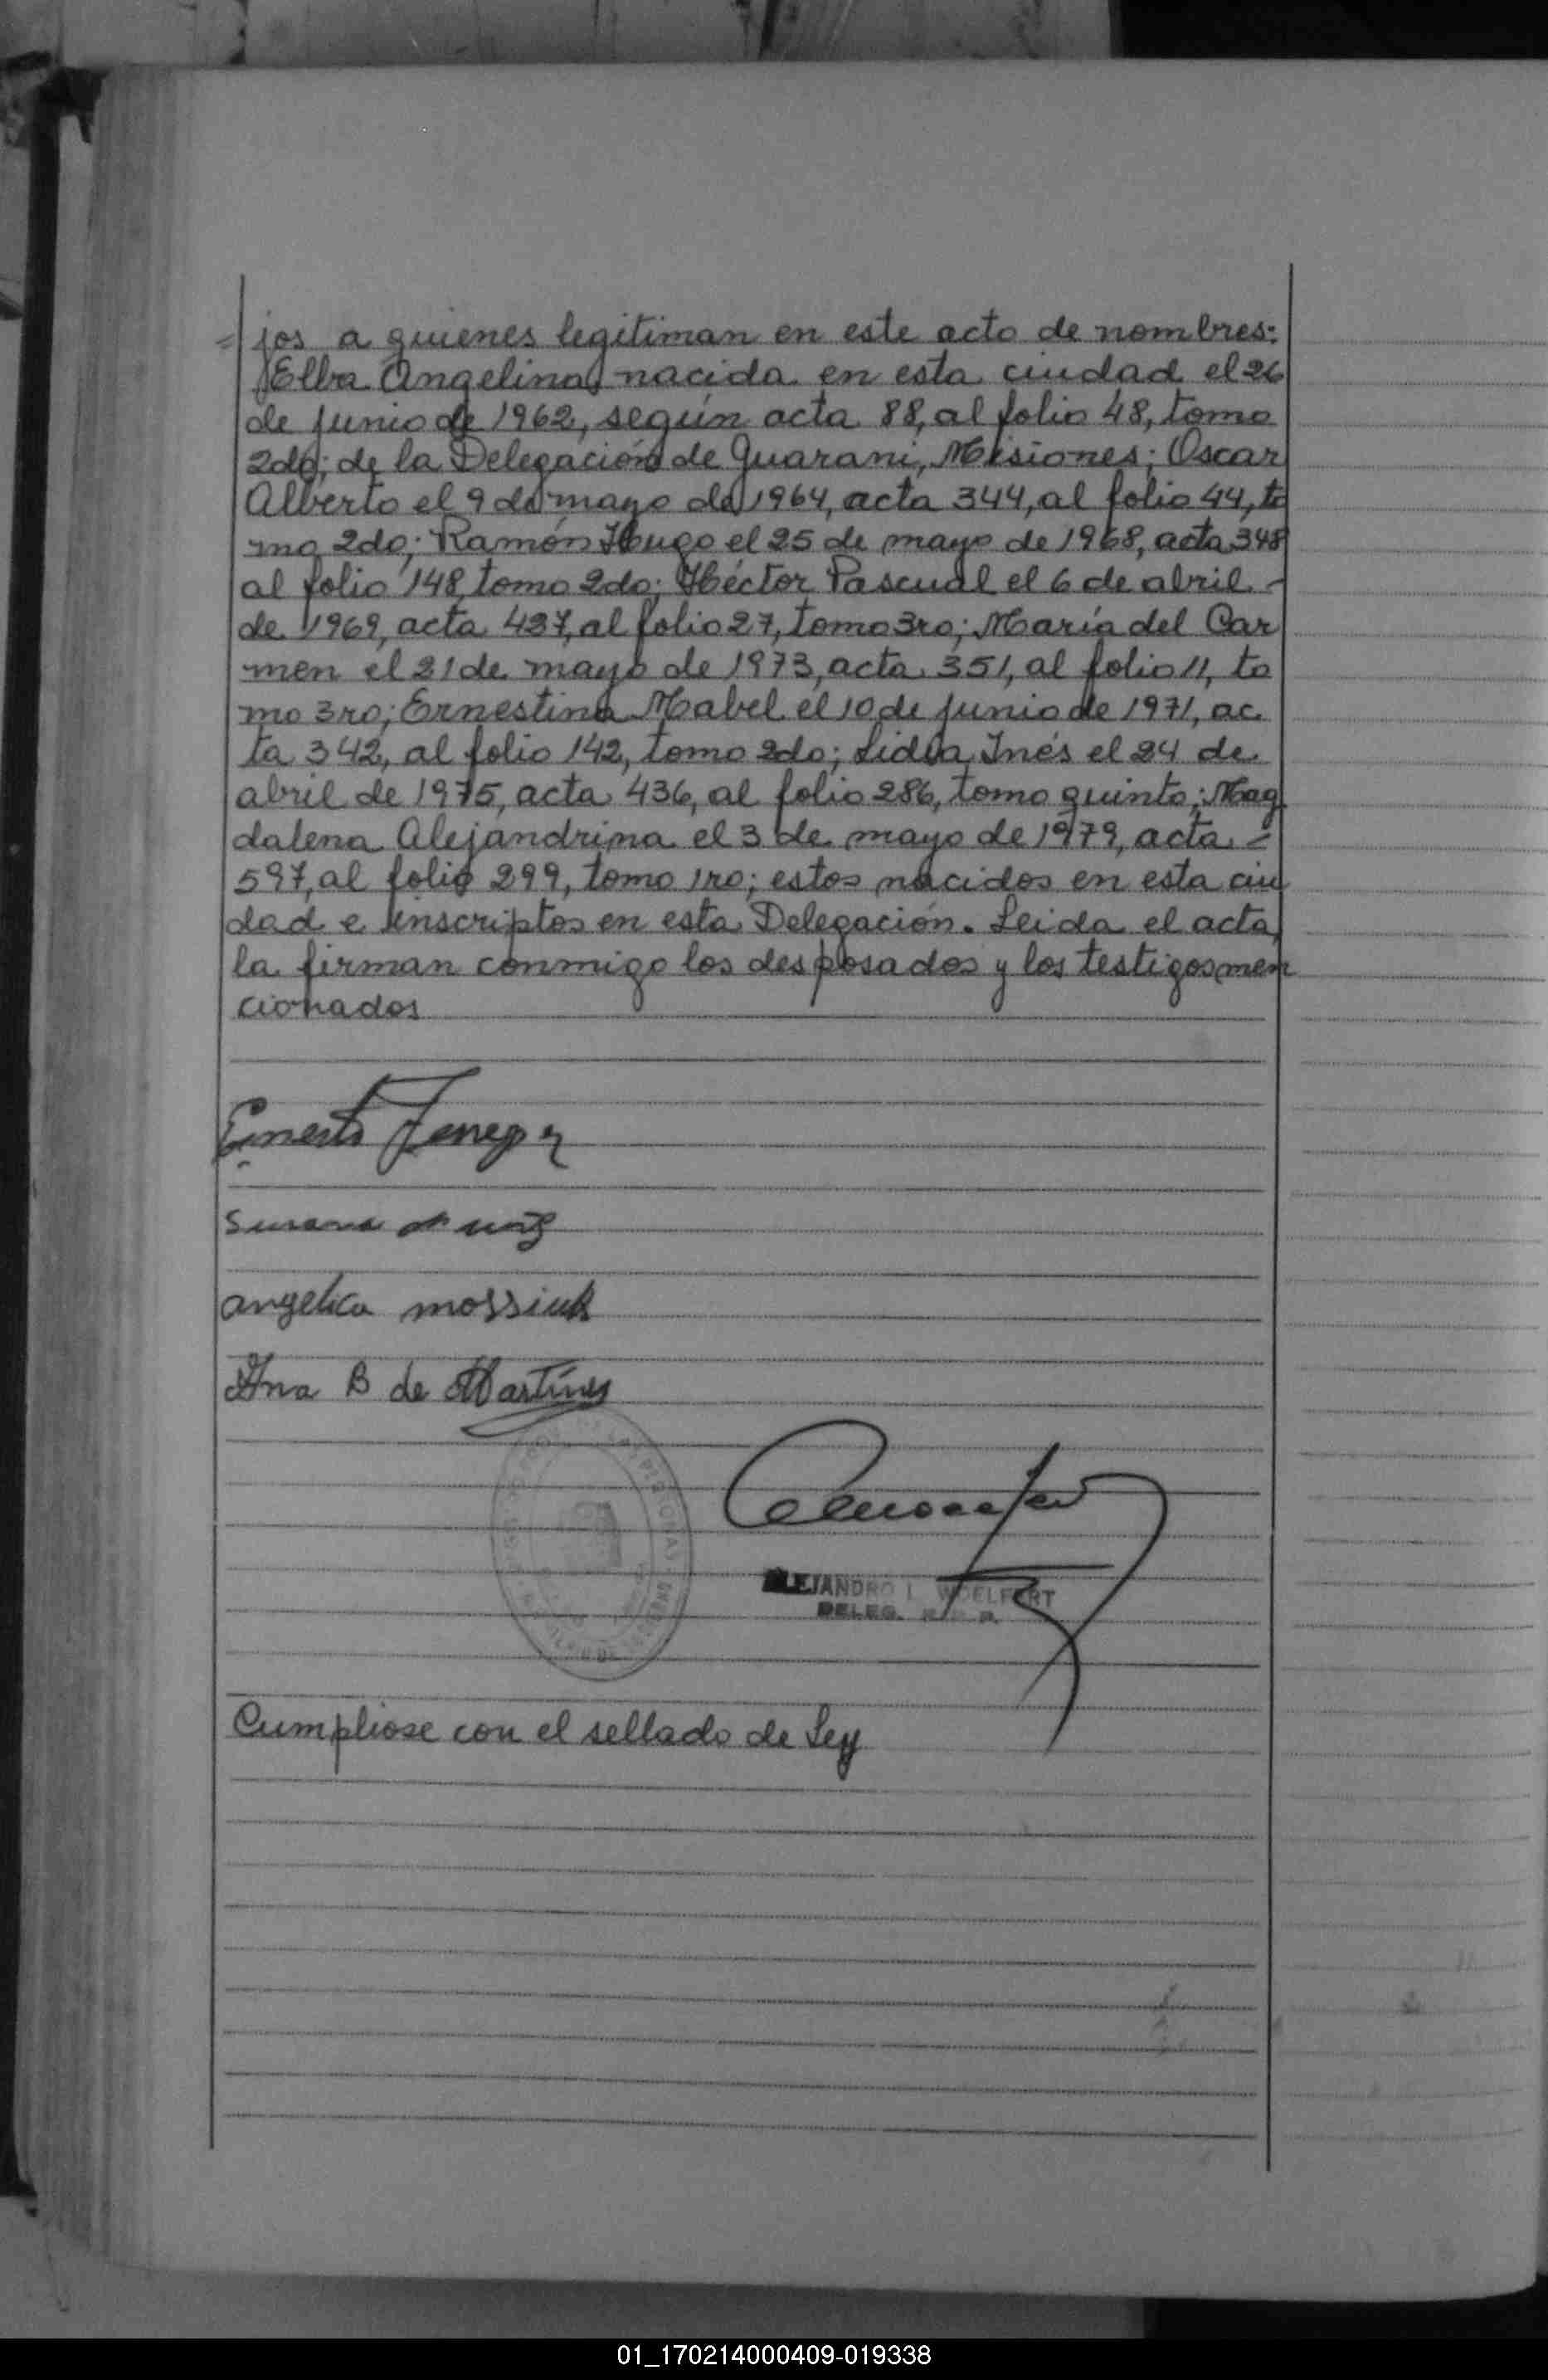 = jos a quienes legitiman en este acto de nombres:
Elba Angelina, nacida en esta ciudad el 26
de junio de 1962, según acta 88, al folio 48, tomo
2do; de la Delegación de Guarani, Misiones; Oscar
Alberto el 9 de mayo de 1964, acta 344, al folio 44, to
mo 2do; Ramón Hugo el 25 de mayo de 1968, acta 348
al folio 148, tomo 2do; Héctor Pascual el 6 de abril -
de 1969, acta 427, al folio 27, tomo 3ro; María del Car
men el 21 de mayo de 1973, acta 351, al folio 11, to
mo 3ro; Ernestina Mabel el 10 de junio de 1971, ac
ta 342, al folio 142, tomo 2do; Lidia Inés el 24 de
abril de 1975, acta 436, al folio 286, tomo quinto; Mag
dalena Alejandrina el 3 de mayo de 1979, acta =
597, al folio 299, tomo 1ro; estos nacidos en esta ciu
dad e inscriptos en esta Delegación. Leida el acta,
la firman conmigo los desposados y los testigos men
cionados
Ernesto
Susana
angelica mossiuk
Ana B de Martínes
ALEJANDRO I. WOELFERT
DELEG. R. P.
Cumpliose con el sellado de Ley
01_170214000409-019338